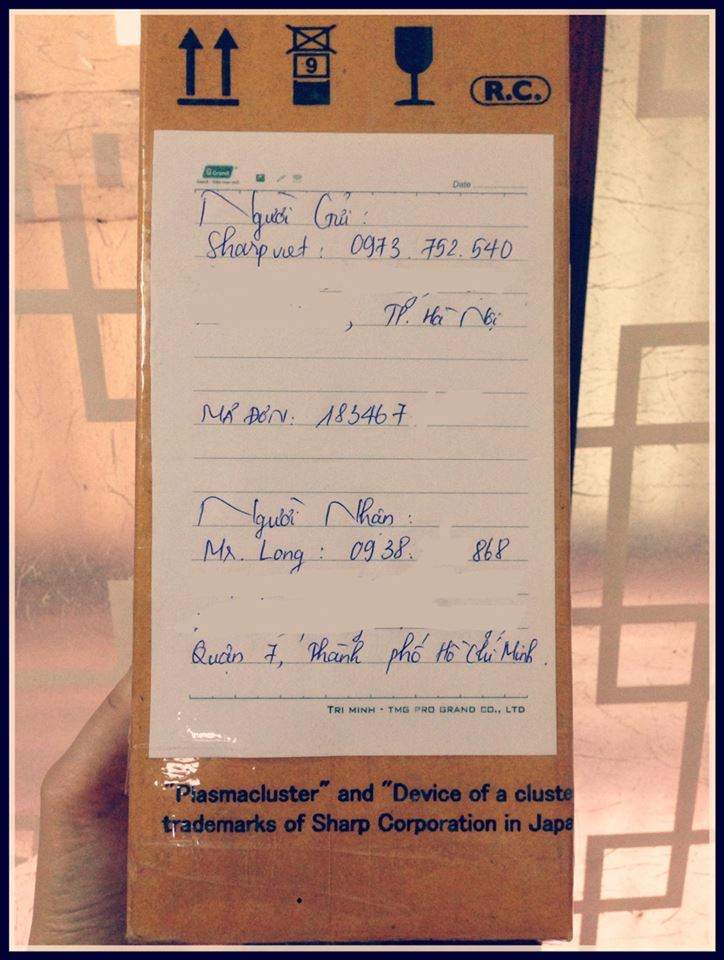 9
R.C.
Grand
Date
Người Gửi:
Sharp viet: 0973.752.540
, TP. Hà Nội
MÃ ĐƠN: 183467
Người Nhận:
Mr. Long: 0938. 868
Quận 7, Thành phố Hồ Chí Minh.
TRI MINH - TMG PRO GRAND CO., LTD
"Plasmacluster" and "Device of a cluste
trademarks of Sharp Corporation in Japa